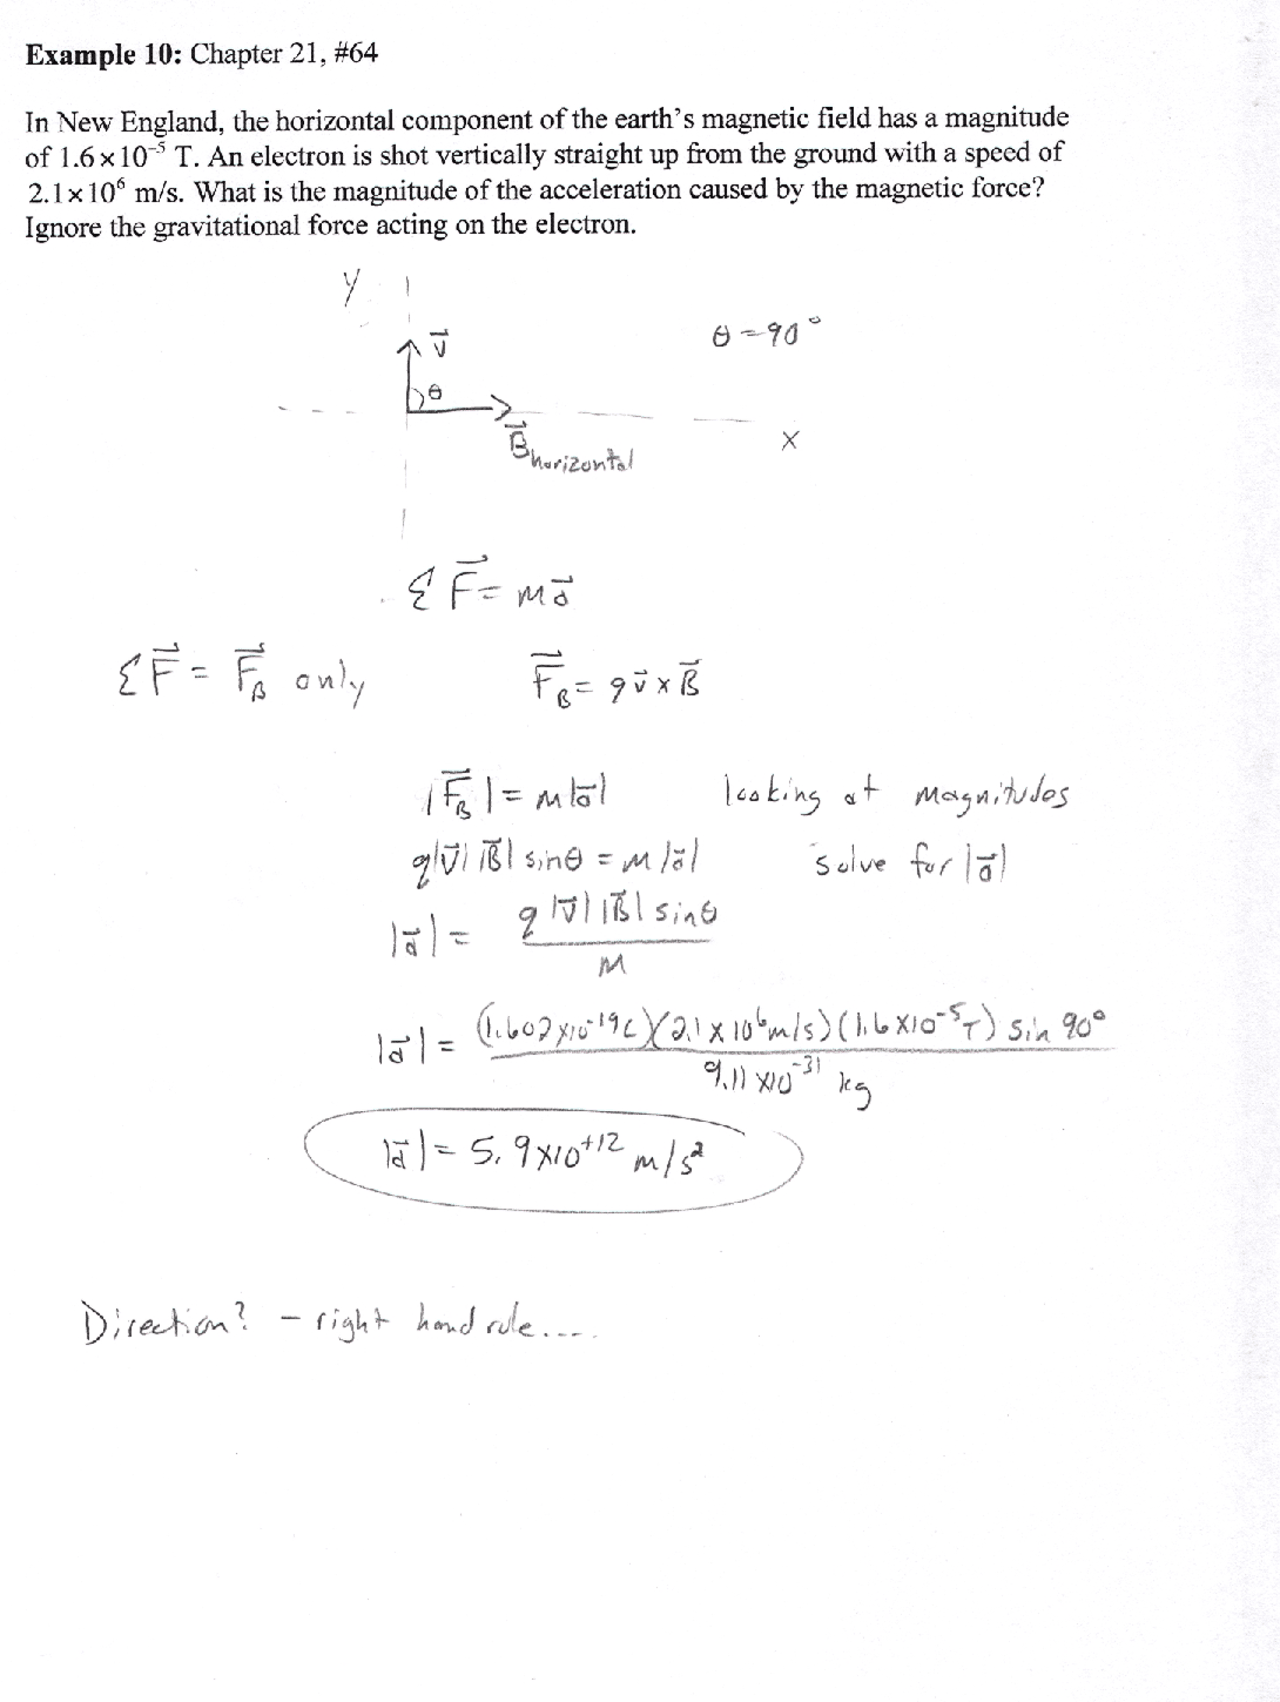 Example 10: Chapter 21, #64
In New England, the horizontal component of the earth's magnetic field has a magnitude
of 1.6×10⁻⁵ T. An electron is shot vertically straight up from the ground with a speed of
2.1×10⁶ m/s. What is the magnitude of the acceleration caused by the magnetic force?
Ignore the gravitational force acting on the electron.
y
v⃗
θ = 90°
θ
x
B⃗horizontal
ΣF⃗ = ma⃗
ΣF⃗ = F⃗_B only
F⃗_B = qv⃗ × B⃗
|F⃗_B| = m|a⃗| looking at magnitudes
q|v⃗||B⃗| sinθ = m|a⃗| solve for |a⃗|
|a⃗| = q|v⃗||B⃗| sinθ
m
|a⃗| = (1.602×10⁻¹⁹C)(2.1×10⁶m/s)(1.6×10⁻⁵T) sin 90°
9.11×10⁻³¹ kg
|a⃗| = 5.9×10⁺¹² m/s²
Direction? – right hand rule....